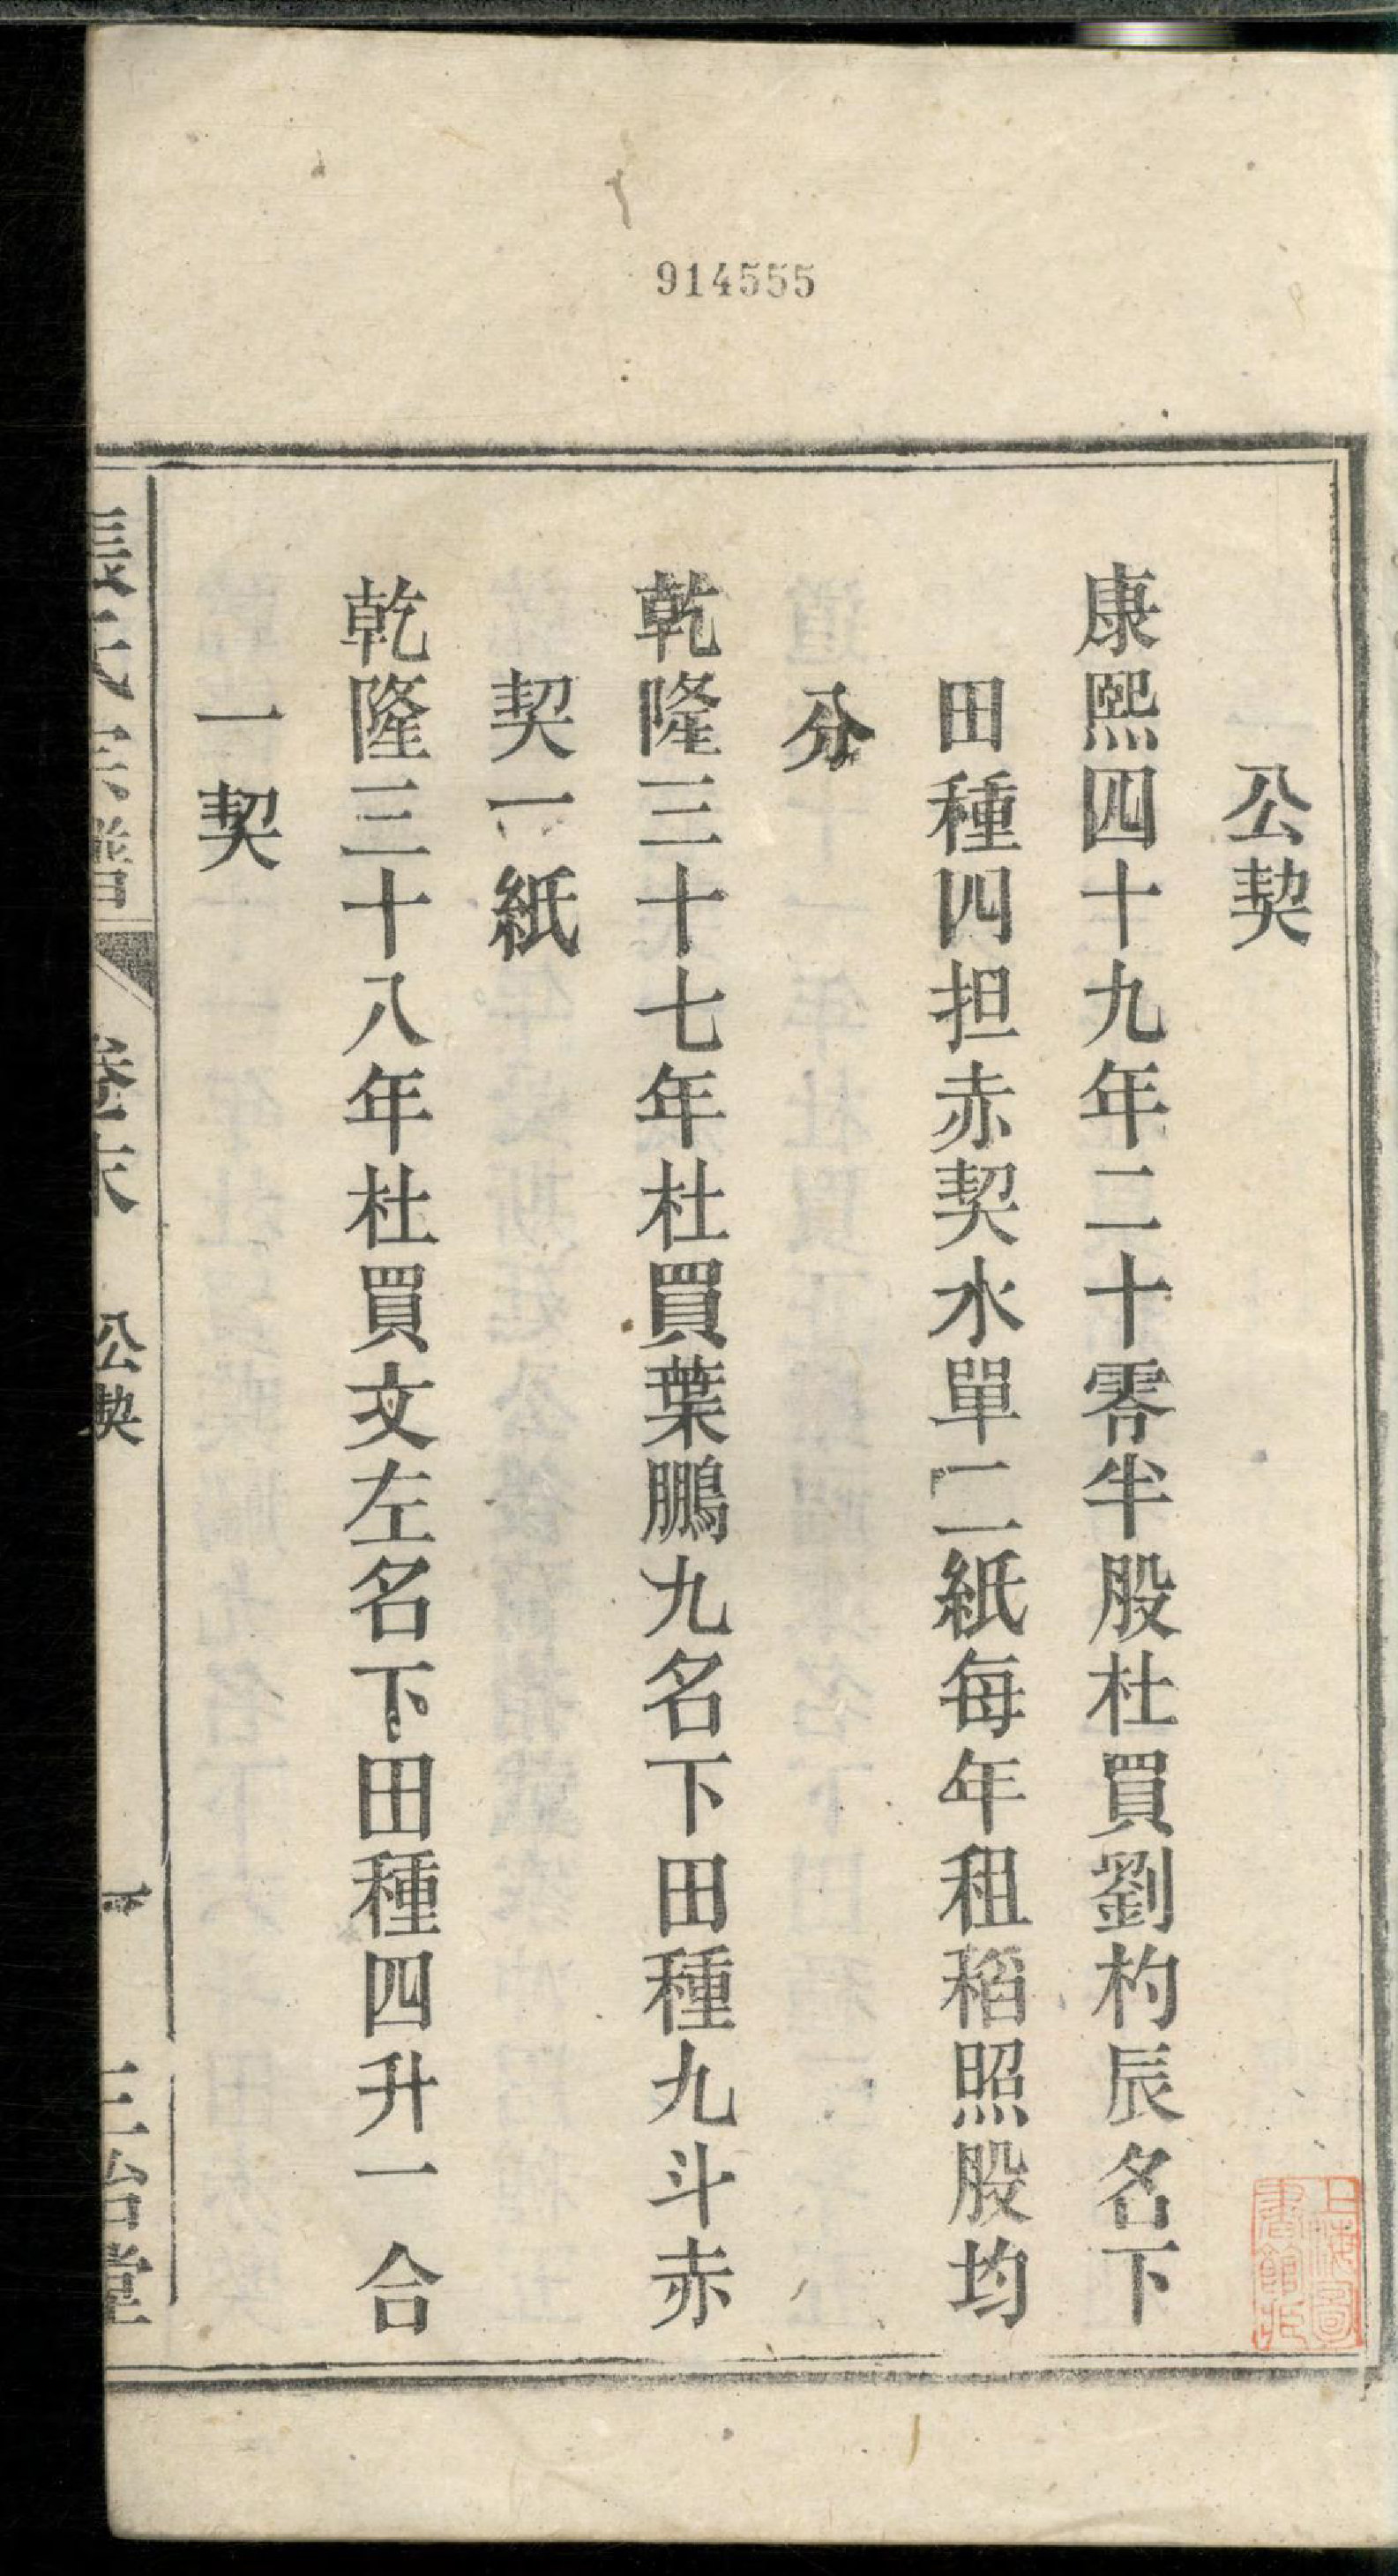 914555
公契
康熙四十九年二十零半股杜買劉杓辰名下
田種四担赤契水單二紙每年租稻照股均
分
乾隆三十七年杜買葉鵬九名下田種九斗赤
契一紙
乾隆三十八年杜買文左名下田種四升一合
一契
張氏宗譜 卷末 公契 一 三治堂
上海圖書館藏